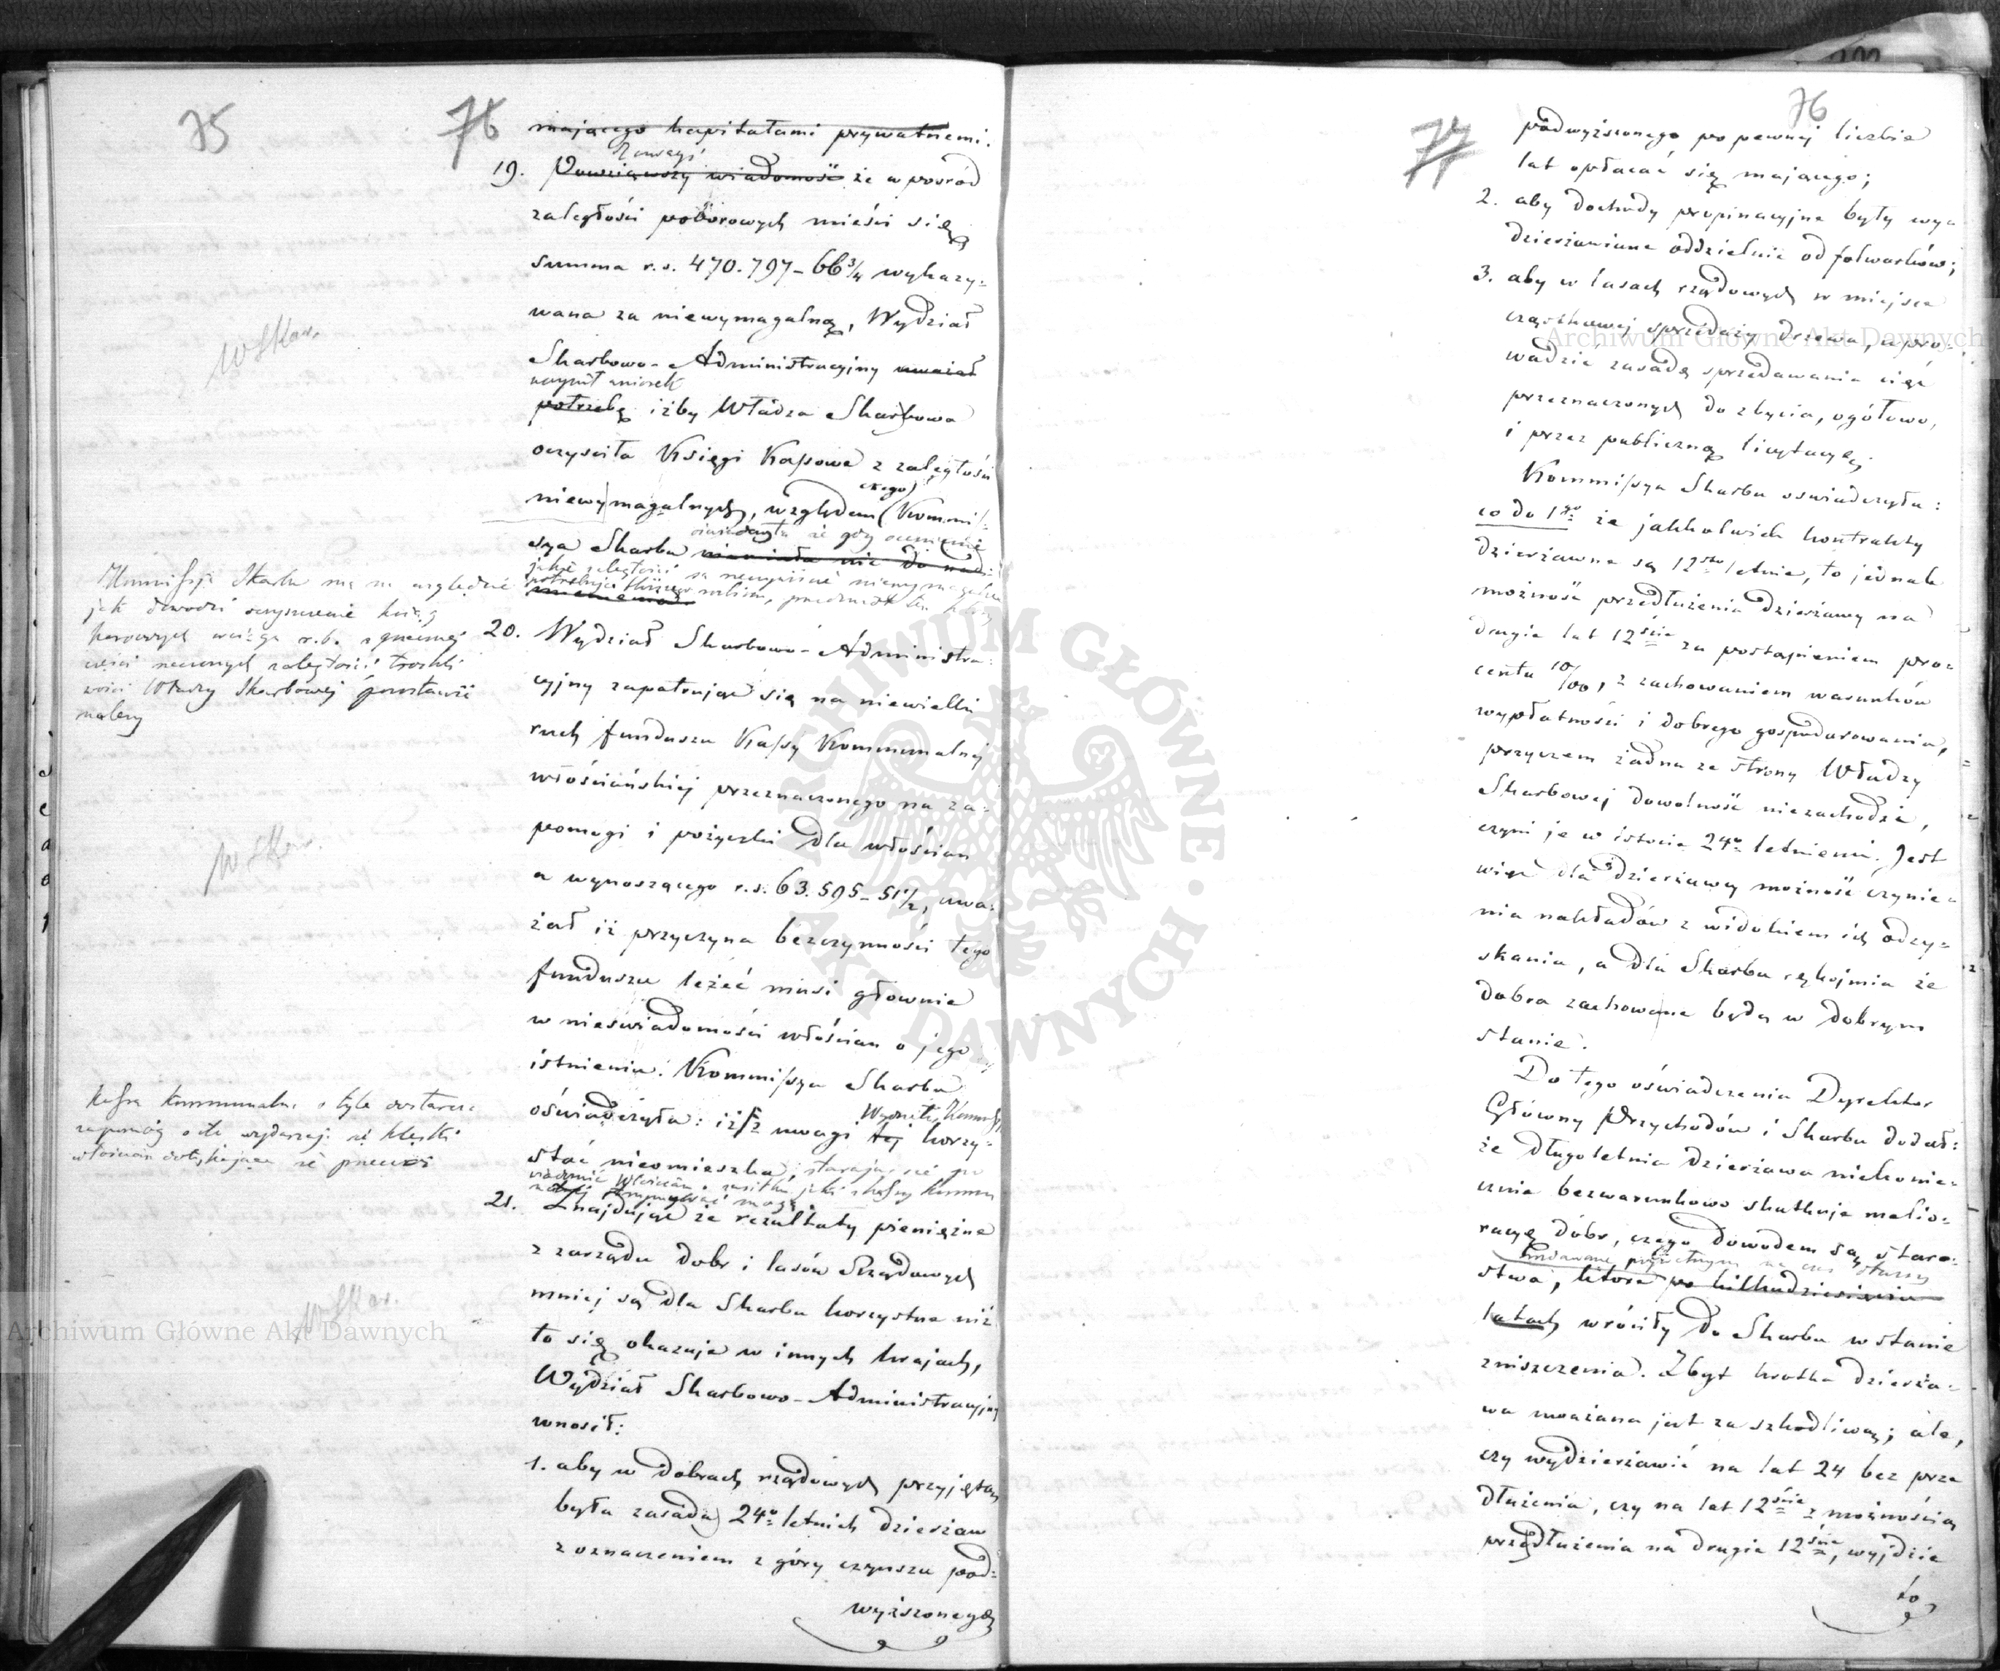 75
76
mającego kapitałami prywatnemi.
Z uwagi
19. Powziąwszy wiadomość że w pośród
zaległości poborowych mieści się
summa r.s. 470.797 - 66 3/4 wykazy-
wana za niewymagalną, Wydział
Skarbowo-Administracyjny uważał
uczynił wniosek
potrzebę iżby Władza Skarbowa
oczyściła Księgi Kassowe z zaległości
niewymagalnych, względem (czego) Kommis-
sya Skarbu niemiała nic do nad-
oświadczyła że gdy
W Skar.
Kommissja Skarbu ma na względzie
jak dowodzi oczyszczenie ksiąg
20. Wydział Skarbowo-Administra-
cyjny zapatrując się na niewielki
ruch funduszu Kassy Kommunalnej
włościańskiej przeznaczonego na za-
pomogi i pożyczki dla włościan
a wynoszącego r.s. 63.595 - 51 1/2, uwa-
żał iż przyczyna bezczynności tego
funduszu leżeć musi głównie
w nieświadomości włościan o jego
istnieniu. Kommissya Skarbu
oświadczyła: iż z uwagi tej korzy-
stać nieomieszka, starając się po
W Skar.
Kassa Kommunalna o tyle dostarcza
zapomóg o ile wydarzają się klęski
21. Znajdując że rezultaty pieniężne
z zarządu dóbr i lasów Rządowych
mniej są dla Skarbu korzystne niż
to się okazuje w innych krajach,
Wydział Skarbowo-Administracyjny
wnosił:
W Skar.
1. aby w dobrach rządowych przyjętą
była zasada 24o letnich dzierżaw
z oznaczeniem z góry czynszu pod-
wyższonego
76
77
podwyższonego po pewnej liczbie
lat opłacać się mającego;
2. aby dochody propinacyjne były wy-
dzierżawiane oddzielnie od folwarków;
3. aby w lasach rządowych w miejsce
cząstkowej sprzedaży drzewa, wpro-
wadzić zasadę sprzedawania cięć
przeznaczonych do zbycia, ogółowo,
i przez publiczną licytacyę;
Kommissya Skarbu oświadczyła:
co do 1go że jakkolwiek kontrakty
dzierżawne są 12sto letnie, to jednak
możność przedłużenia dzierżawy na
drugie lat 12ście za postąpieniem pro-
centu 10/00, z zachowaniem warunków
wypłatności i dobrego gospodarowania,
przyczem żadna ze strony Władzy
Skarbowej dowolność niezachodzi,
czyni je w istocie 24o letniemi. Jest
więc dla dzierżawcy możność czynie-
nia nakładów z widokiem ich odzy-
skania, a dla Skarbu rękojmia że
dobra zachowane będą w dobrym
stanie.
Do tego oświadczenia Dyrektor
Główny Przychodów i Skarbu dodał:
że długoletnia dzierżawa niekonie-
cznie bezwarunkowo skutkuje melio-
racyę dóbr, czego dowodem są staro-
stwa, które po kilkudziesięciu
latach wróciły do Skarbu w stanie
zniszczenia. Zbyt krótka dzierża-
wa uważana jest za szkodliwą; ale,
czy wydzierżawić na lat 24 bez prze
dłużenia, czy na lat 12ście z możnością
przedłużenia na drugie 12ście, wyjdzie
to
Archiwum Główne Akt Dawnych
Archiwum Główne Akt Dawnych
ARCHIWUM GŁÓWNE AKT DAWNYCH